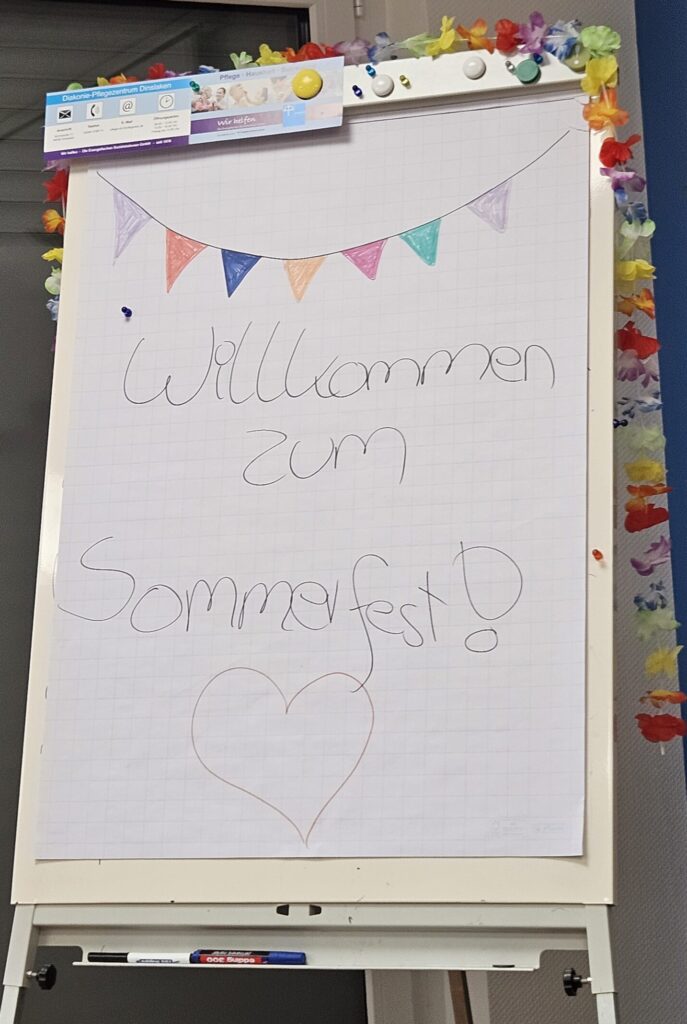 Diakonie-Pflegezentrum Dinslaken
Pflege · Hausnotruf
Anschrift
Telefon
E-Mail
Öffnungszeiten
Wir helfen
Wir helfen – Die Evangelischen Sozialstationen GmbH – seit 1978
Willkommen
zum
Sommerfest!
edding 300